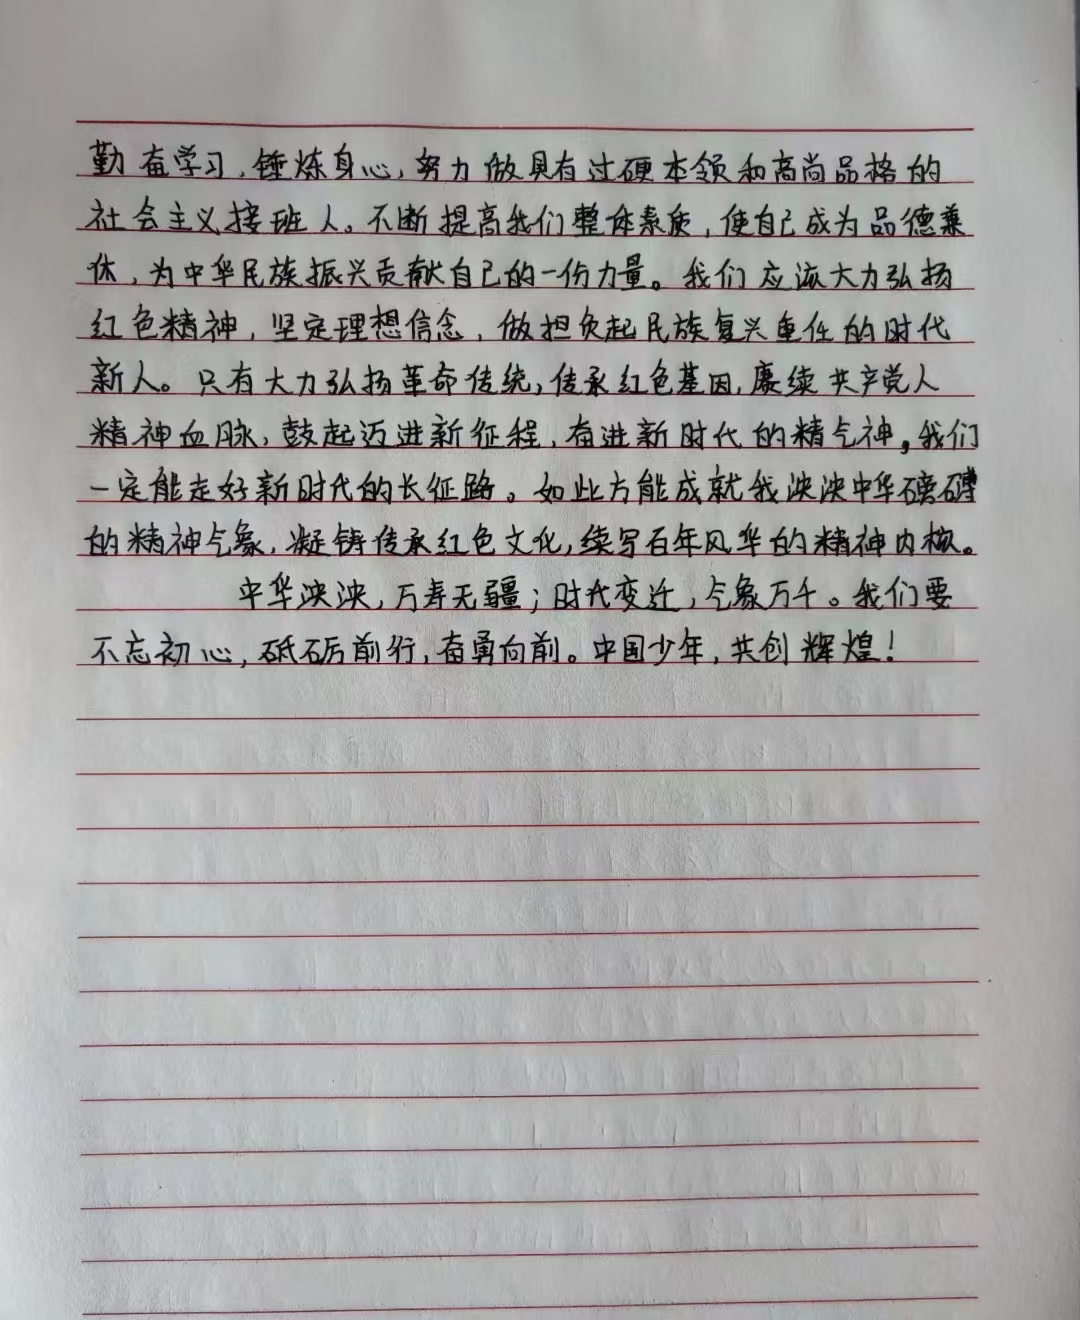 勤奋学习,锤炼身心,努力做具有过硬本领和高尚品格的
社会主义接班人。不断提高我们整体素质,使自己成为品德兼
休,为中华民族振兴贡献自己的一份力量。我们应该大力弘扬
红色精神,坚定理想信念,做担负起民族复兴重任的时代
新人。只有大力弘扬革命传统,传承红色基因,赓续共产党人
精神血脉,鼓起迈进新征程,奋进新时代的精气神,我们
一定能走好新时代的长征路。如此方能成就我泱泱中华磅礴
的精神气象,凝铸传承红色文化,续写百年风华的精神内核。
中华泱泱,万寿无疆;时代变迁,气象万千。我们要
不忘初心,砥砺前行,奋勇向前。中国少年,共创辉煌!